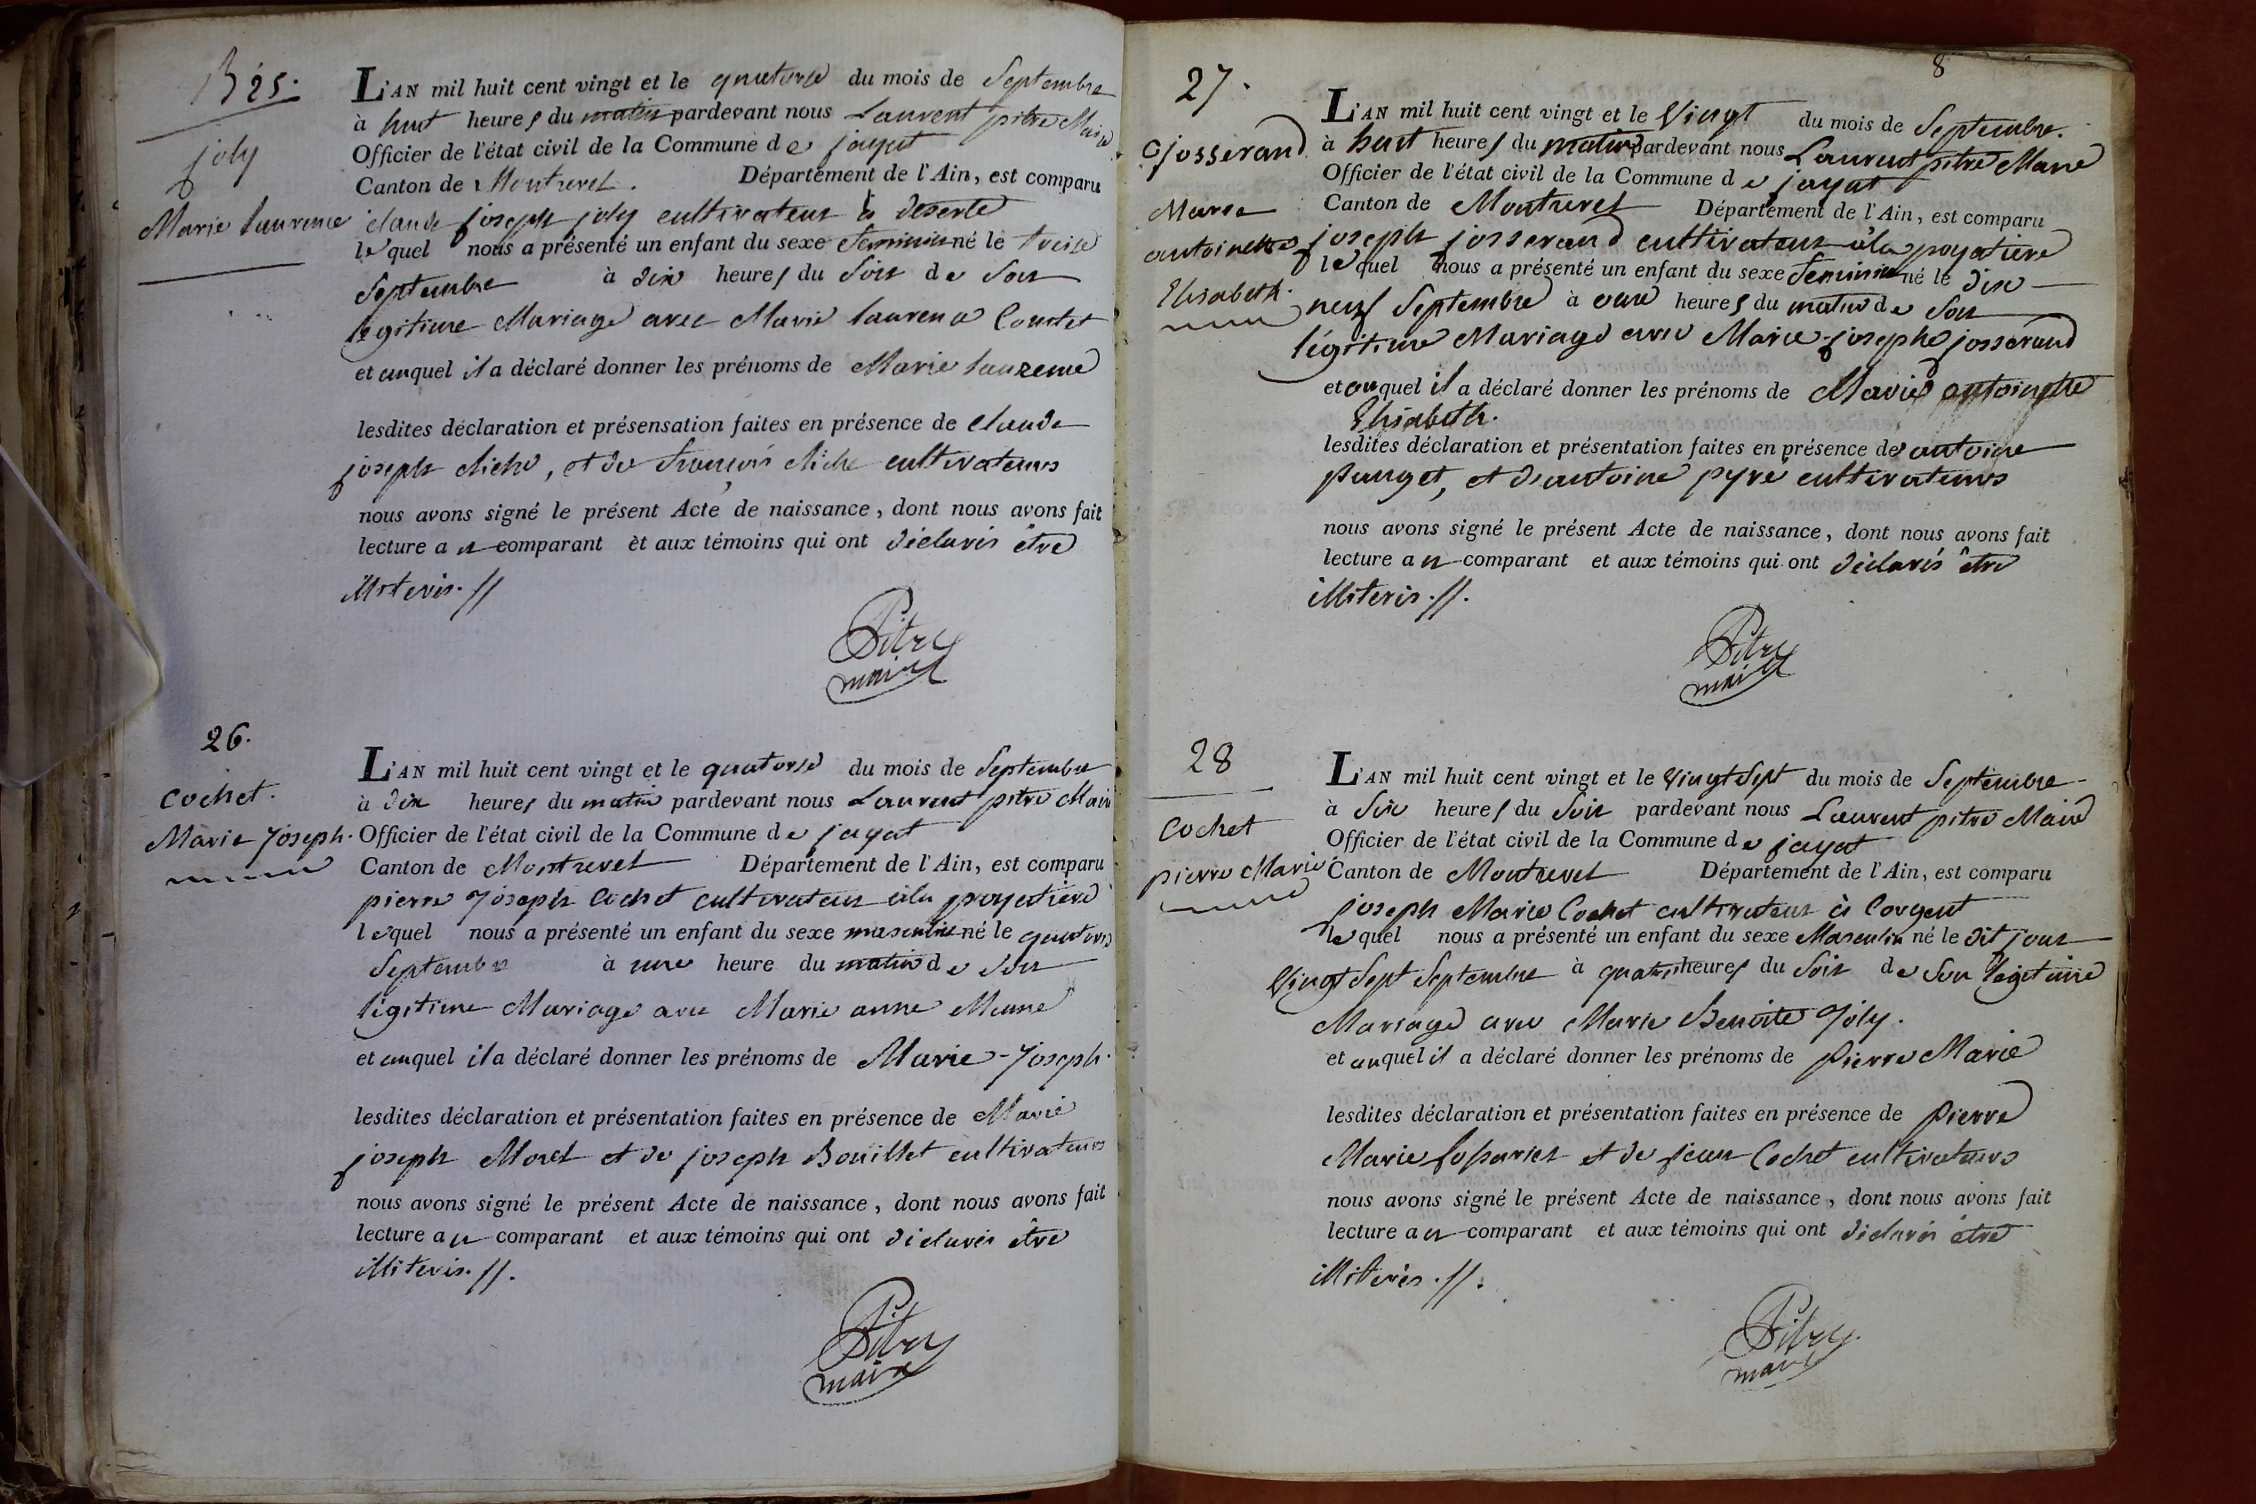 25.
joly
Marie laurence
L'AN mil huit cent vingt et le quatorse du mois de Septembre
à huit heures du matin pardevant nous Laurent pitre Maire
Officier de l'état civil de la Commune de jayat
Canton de Montrevel. Département de l'Ain, est comparu
claude joseph joly cultivateur à deserte
lequel nous a présenté un enfant du sexe feminin né le treise
Septembre à dix heures du Soir de Son
légitime Mariage avec Marie laurence
et auquel il a déclaré donner les prénoms de Marie laurence
lesdites déclaration et présensation faites en présence de claude
joseph cliche, et de françois cliche cultivateurs
nous avons signé le présent Acte de naissance, dont nous avons fait
lecture au comparant et aux témoins qui ont déclarés être
illiterés.//
Pitre
maire
26.
Cochet.
Marie Joseph.
L'AN mil huit cent vingt et le quatorse du mois de Septembre
à dix heures du matin pardevant nous Laurent pitre Maire
Officier de l'état civil de la Commune de jayat
Canton de Montrevel Département de l'Ain, est comparu
pierre Joseph Cochet cultivateur à la
lequel nous a présenté un enfant du sexe masculin né le quatorse
Septembre à une heure du matin de Son
légitime Mariage avec Marie anne
et auquel il a déclaré donner les prénoms de Marie-Joseph.
lesdites déclaration et présentation faites en présence de Marie
joseph Morel et de joseph Bouillet cultivateurs
nous avons signé le présent Acte de naissance, dont nous avons fait
lecture au comparant et aux témoins qui ont déclarés être
illiterés.//.
Pitre
maire
8
27.
josserand
Marie
antoinette
Elisabeth.
L'AN mil huit cent vingt et le Vingt du mois de Septembre.
à huit heures du matin pardevant nous Laurent pitre Maire
Officier de l'état civil de la Commune de jayat
Canton de Montrevel Département de l'Ain, est comparu
joseph josserand cultivateur à la poyatiere
lequel nous a présenté un enfant du sexe feminin né le dix
neuf Septembre à onze heures du matin de Son
légitime Mariage avec Marie josephe josserand
et auquel il a déclaré donner les prénoms de Marie antoinette
Elisabeth.
lesdites déclaration et présentation faites en présence de antoine
pauget, et d'antoine pyré cultivateurs
nous avons signé le présent Acte de naissance, dont nous avons fait
lecture au comparant et aux témoins qui ont déclarés être
illiterés.//.
Pitre
maire
28
Cochet
pierre Marie
L'AN mil huit cent vingt et le Vingt Sept du mois de Septembre
à Six heures du Soir pardevant nous Laurent pitre Maire
Officier de l'état civil de la Commune de jayat
Canton de Montrevel Département de l'Ain, est comparu
joseph Marie Cochet cultivateur à Corgent
lequel nous a présenté un enfant du sexe Masculin né le dit jour
Vingt Sept Septembre à quatre heures du Soir de Son légitime
Mariage avec Marie Benoite Joly.
et auquel il a déclaré donner les prénoms de Pierre Marie
lesdites déclaration et présentation faites en présence de Pierre
Marie et de jean Cochet cultivateurs
nous avons signé le présent Acte de naissance, dont nous avons fait
lecture au comparant et aux témoins qui ont déclarés être
illiterés.//.
Pitre
maire